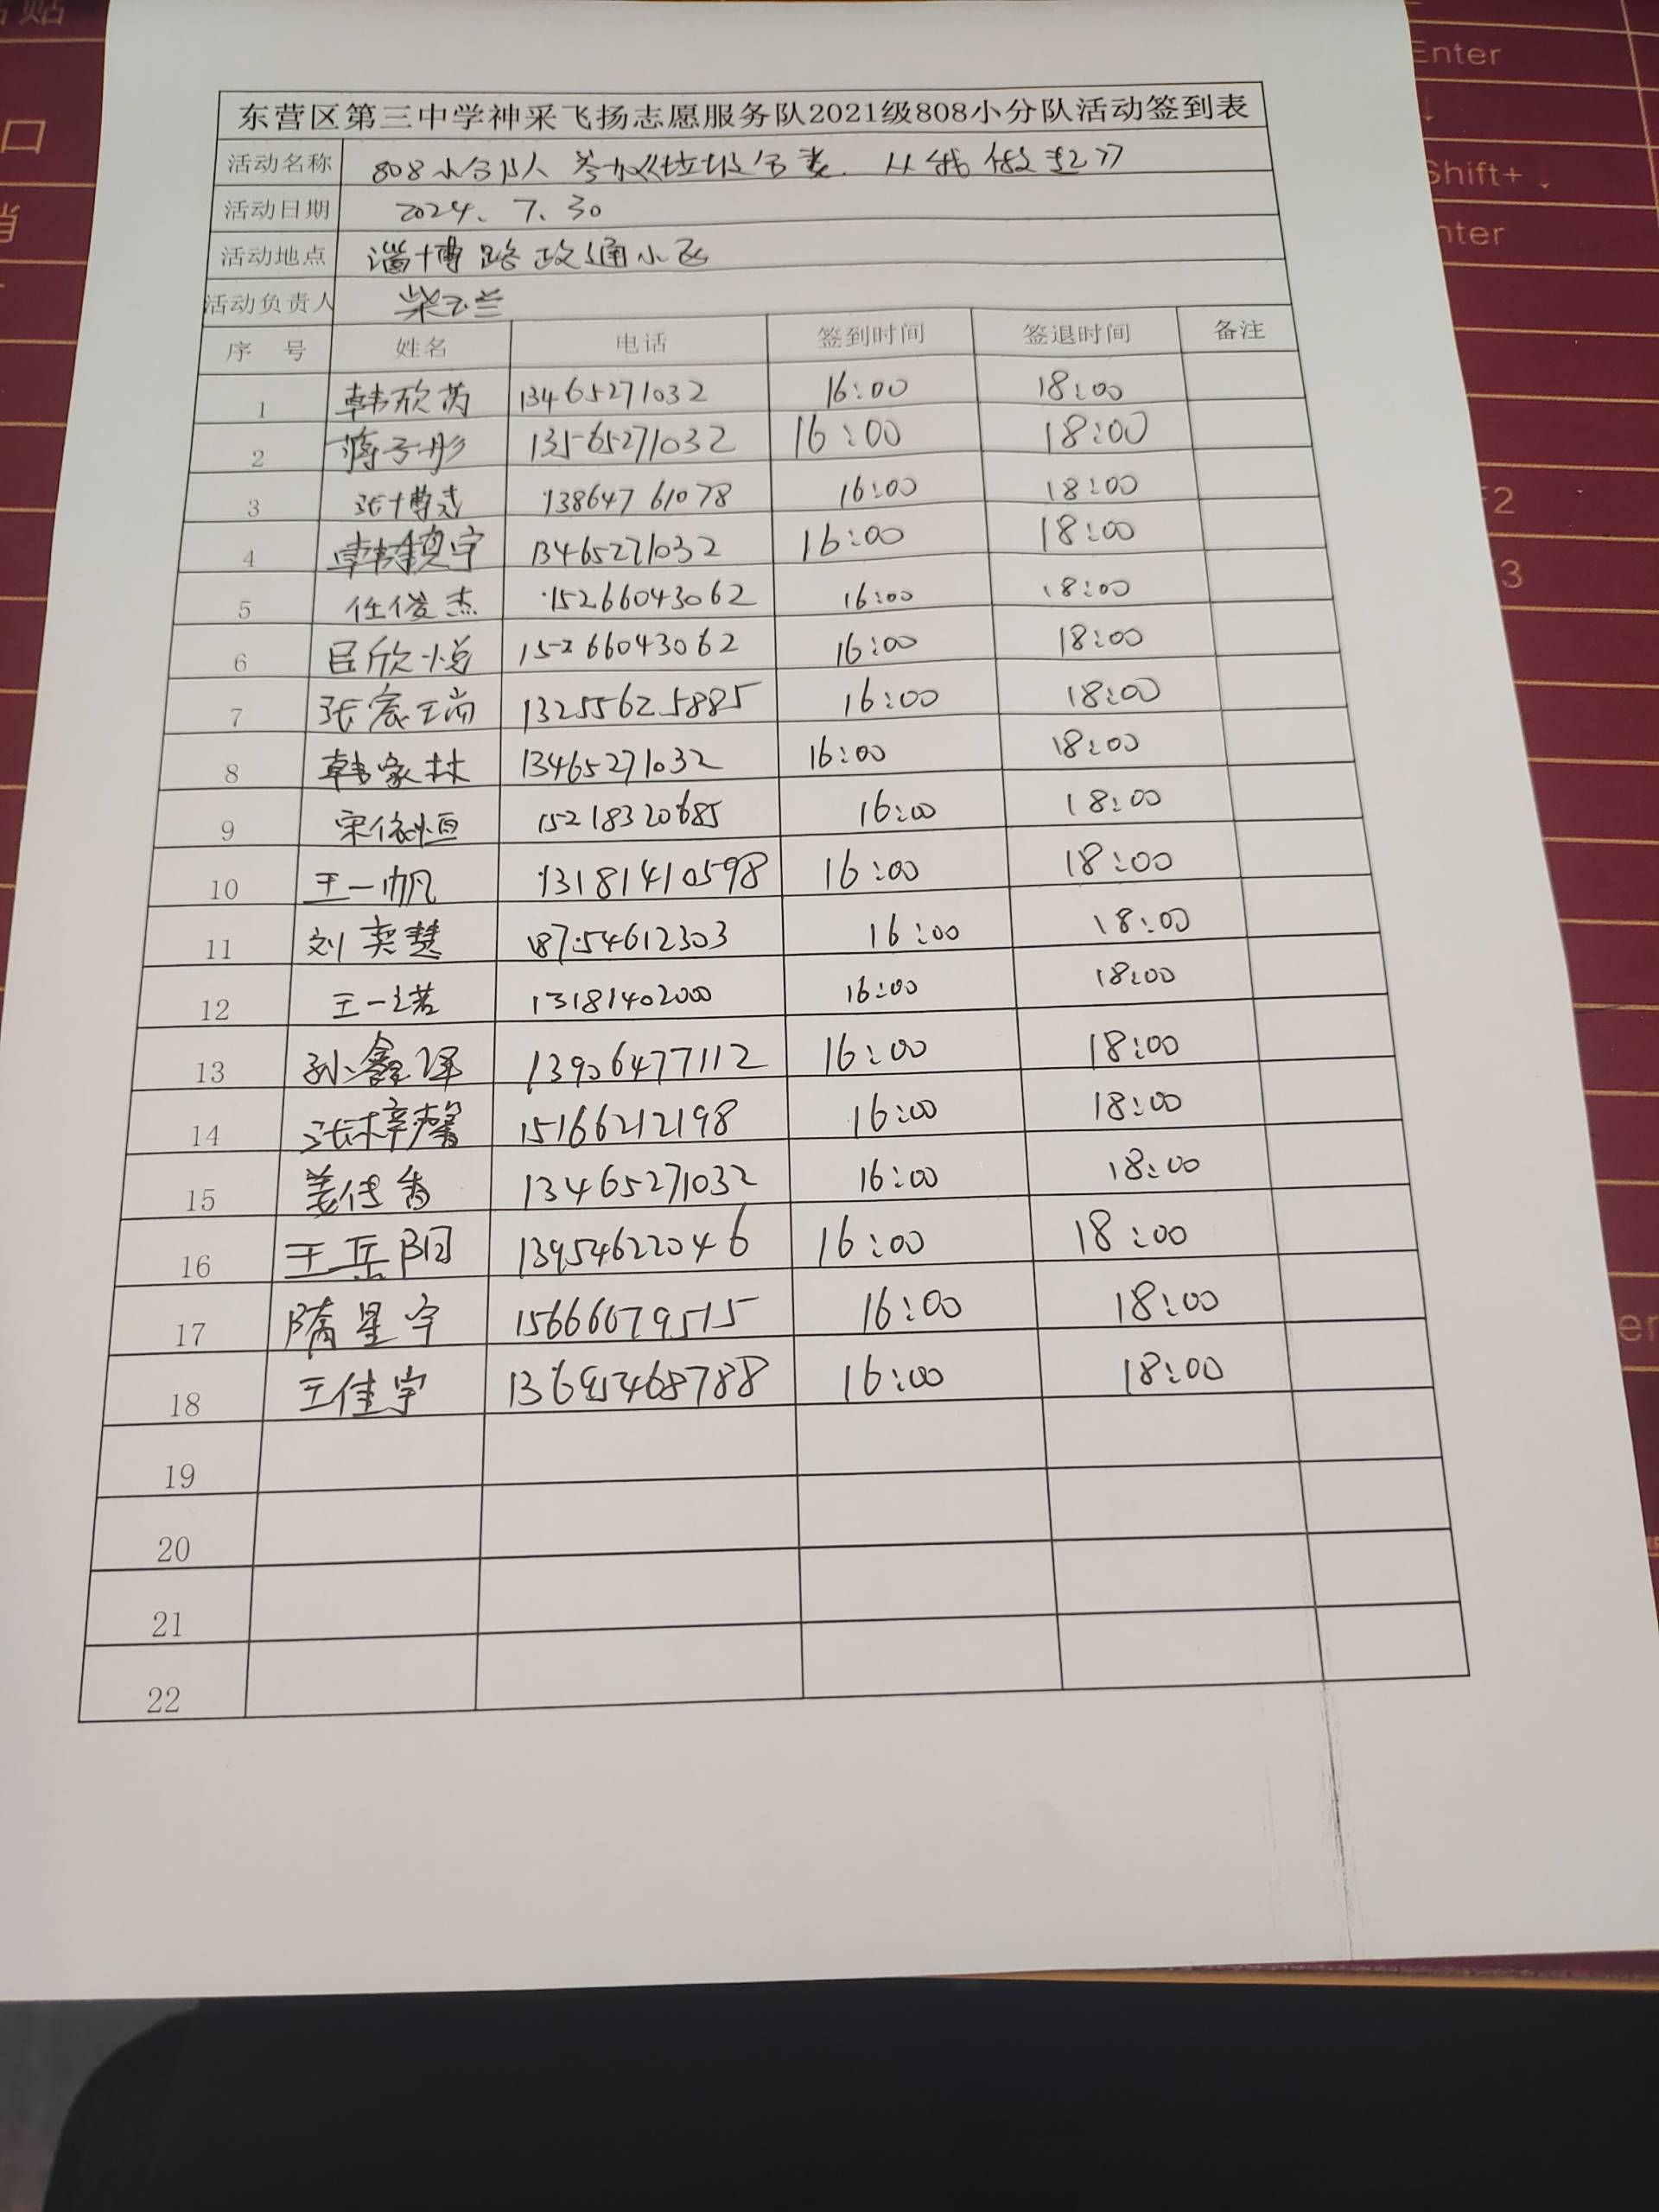 东营区第三中学神采飞扬志愿服务队2021级808小分队活动签到表
活动名称 808小分队 参加《垃圾分类. 从我做起》
活动日期 2024. 7. 30
活动地点 淄博路政通小区
活动负责人 柴玉兰
序 号 姓名 电话 签到时间 签退时间 备注
1 韩欣芮 13465271032 16:00 18:00
2 蒋子彤 13565271032 16:00 18:00
3 张博志 13864761078 16:00 18:00
4 韩镇宇 13465271032 16:00 18:00
5 任俊杰 15266043062 16:00 18:00
6 吕欣悦 15266043062 16:00 18:00
7 张宸瑞 13255625885 16:00 18:00
8 韩家林 13465271032 16:00 18:00
9 宋依恒 15218320685 16:00 18:00
10 王一帆 13181410598 16:00 18:00
11 刘奕慧 18754612303 16:00 18:00
12 王一诺 13181402000 16:00 18:00
13 孙鑫泽 13906477112 16:00 18:00
14 张梓馨 15166212198 16:00 18:00
15 姜佳香 13465271032 16:00 18:00
16 王岳阳 13954622046 16:00 18:00
17 隋星宇 15666079515 16:00 18:00
18 王佳宇 16:00 18:00
19
20
21
22
Enter
Shift+ ↓